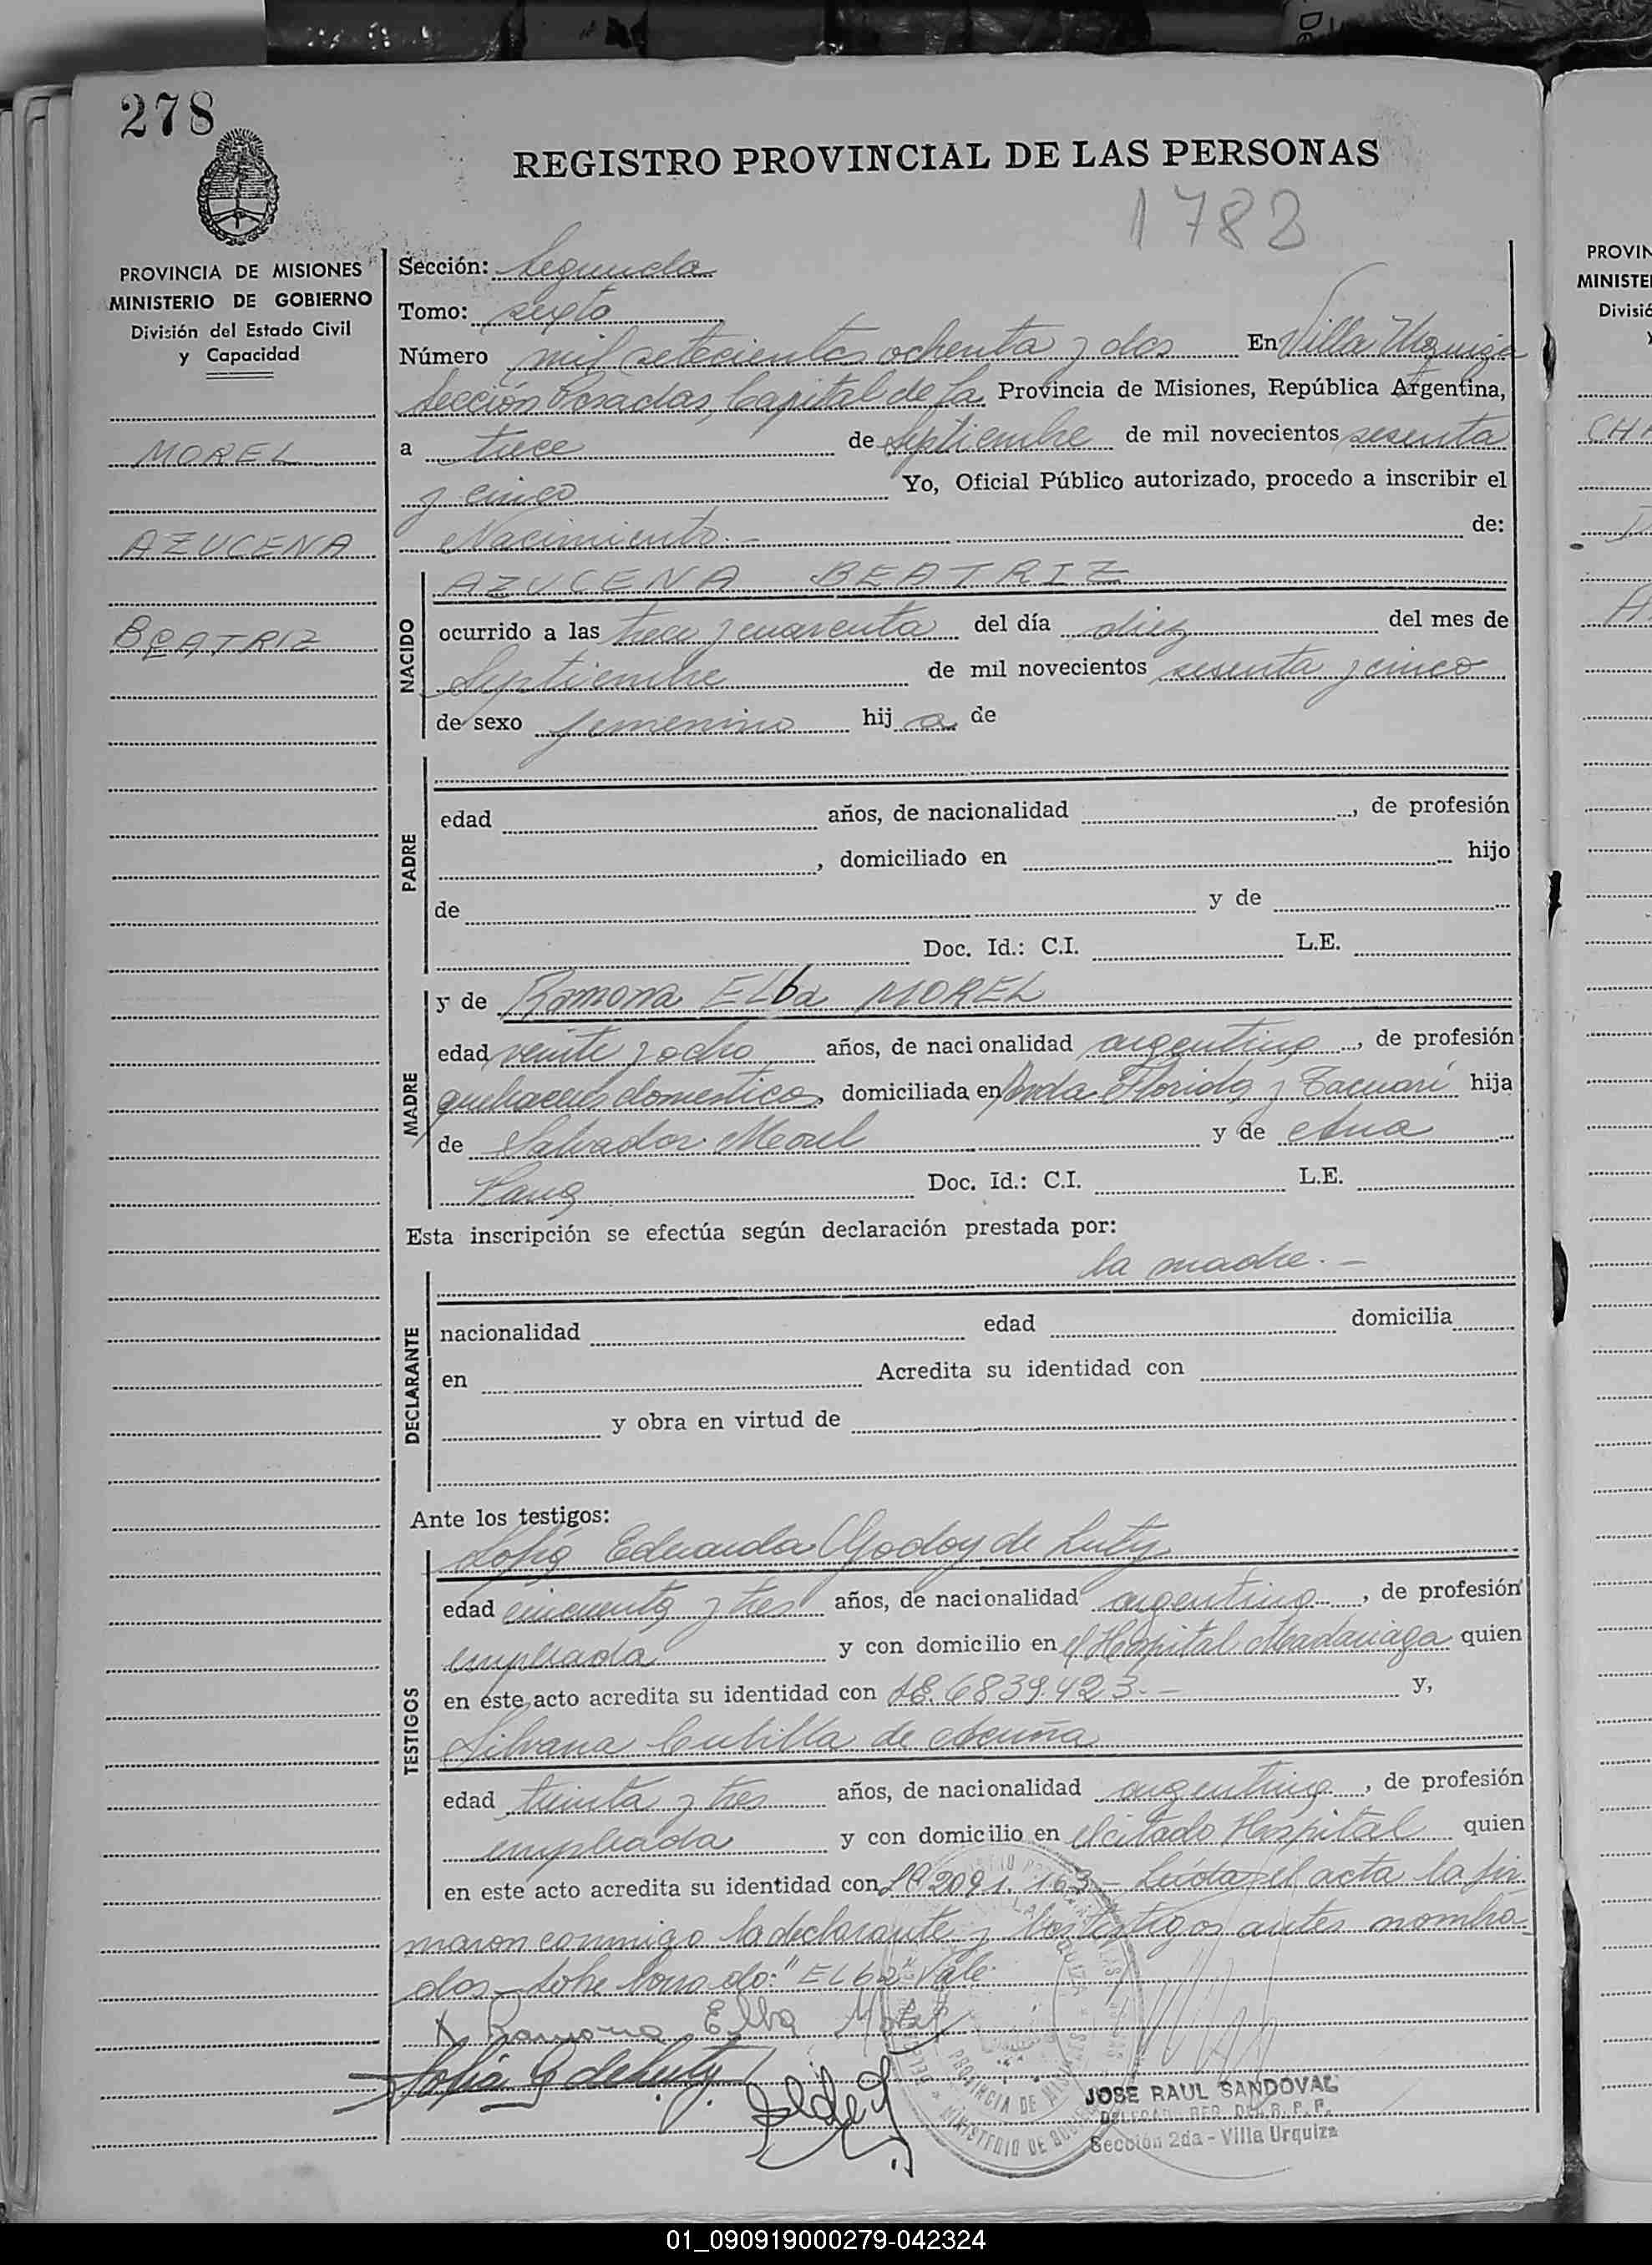 278
REGISTRO PROVINCIAL DE LAS PERSONAS
1782
PROVINCIA DE MISIONES
MINISTERIO DE GOBIERNO
División del Estado Civil
y Capacidad
MOREL
AZUCENA
BEATRIZ
Sección: Segunda
Tomo: sexto
Número mil setecientos ochenta y dos En Villa Urquiza
Sección Posadas, Capital de la Provincia de Misiones, República Argentina,
a trece de Septiembre de mil novecientos sesenta
y cinco Yo, Oficial Público autorizado, procedo a inscribir el
Nacimiento.- de:
NACIDO
AZUCENA BEATRIZ
ocurrido a las trece y cuarenta del día diez del mes de
Septiembre de mil novecientos sesenta y cinco
de sexo femenino hij a de
PADRE
edad años, de nacionalidad , de profesión
, domiciliado en hijo
de y de
Doc. Id.: C.I. L.E.
MADRE
y de Ramona ELba MOREL
edad veinte y ocho años, de nacionalidad argentina, de profesión
quehaceres domesticos, domiciliada en Avda Florida y Tacuarí hija
de Salvador Morel y de Ana
Doc. Id.: C.I. L.E.
Esta inscripción se efectúa según declaración prestada por:
DECLARANTE
la madre.-
nacionalidad edad domicilia
en Acredita su identidad con
y obra en virtud de
Ante los testigos:
TESTIGOS
Sofia Eduarda Godoy de Luty
edad cincuenta y tres años, de nacionalidad argentina, de profesión
empleada y con domicilio en el Hospital Madariaga quien
en este acto acredita su identidad con 6839.423.- y,
Silvana Cubilla de Acuña
edad treinta y tres años, de nacionalidad argentina, de profesión
empleada y con domicilio en el citado Hospital quien
en este acto acredita su identidad con 2091.163- Leída el acta la fir
maron conmigo la declarante y los testigos antes nombra
dos- sobre borrado: "ELba" Vale.
X Ramona Elba Morel
Sofia G de Luty
JOSE RAUL SANDOVAL
Sección 2da - Villa Urquiza
PROVINCIA DE MISIONES
MINISTERIO DE GOBIERNO
PROVIN
MINISTE
Divisió
01_090919000279-042324